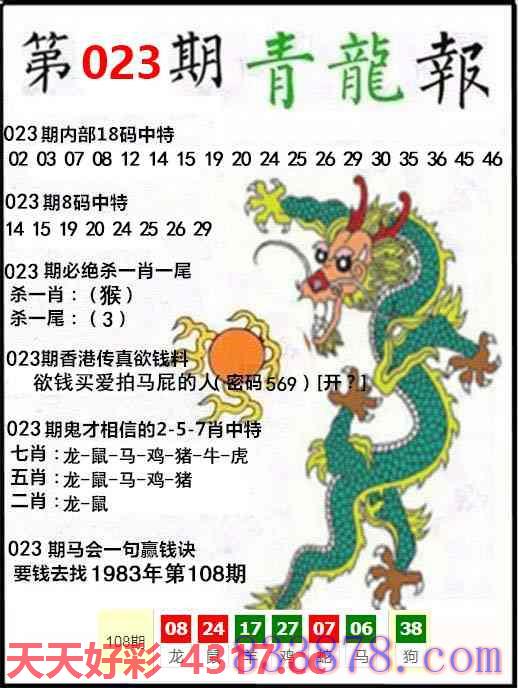 第023期青龍報
023期内部18码中特
02 03 07 08 12 14 15 19 20 24 25 26 29 30 35 36 45 46
023期8码中特
14 15 19 20 24 25 26 29
023 期必绝杀一肖一尾
杀一肖：（猴）
杀一尾：（3）
023期香港传真欲钱料
欲钱买爱拍马屁的人(密码569) [开？]
023期鬼才相信的2-5-7肖中特
七肖：龙-鼠-马-鸡-猪-牛-虎
五肖：龙-鼠-马-鸡-猪
二肖：龙-鼠
023 期马会一句赢钱诀
要钱去找1983年第108期
108期 08 24 17 27 07 06 38
龙 鼠 羊 鸡 蛇 马 狗
天天好彩 4317.cc
838878.com